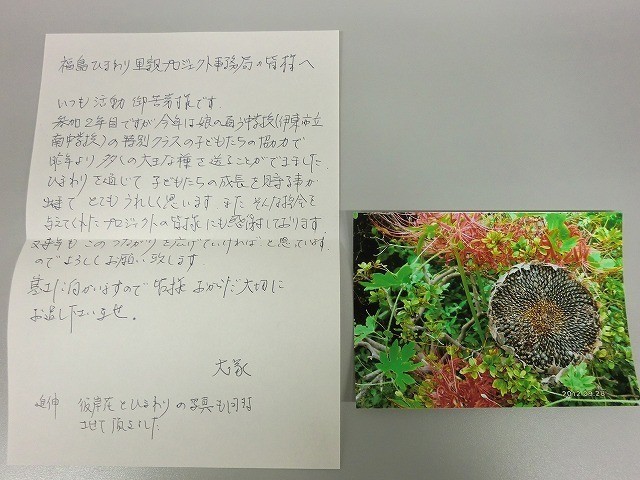 福島ひまわり里親プロジェクト事務局の皆様へ
いつも活動御苦労様です。
参加2年目ですが今年は娘の通う中学校(伊東市立
南中学校)の特別クラスの子どもたちの協力で
昨年より多くの大切な種を送ることができました。
ひまわりを通じて子どもたちの成長を見守る事が
出来て とてもうれしく思います。また そんな機会を
与えてくれたプロジェクトの皆様にも感謝しております。
来年もこのつながりを広げていければと思っています。
のでよろしくお願い致します。
寒さに向かいますので皆様おからだ大切に
お過し下さいませ。
大塚
追伸 彼岸花とひまわりの写真も同封
させて頂きました
2012.09.26